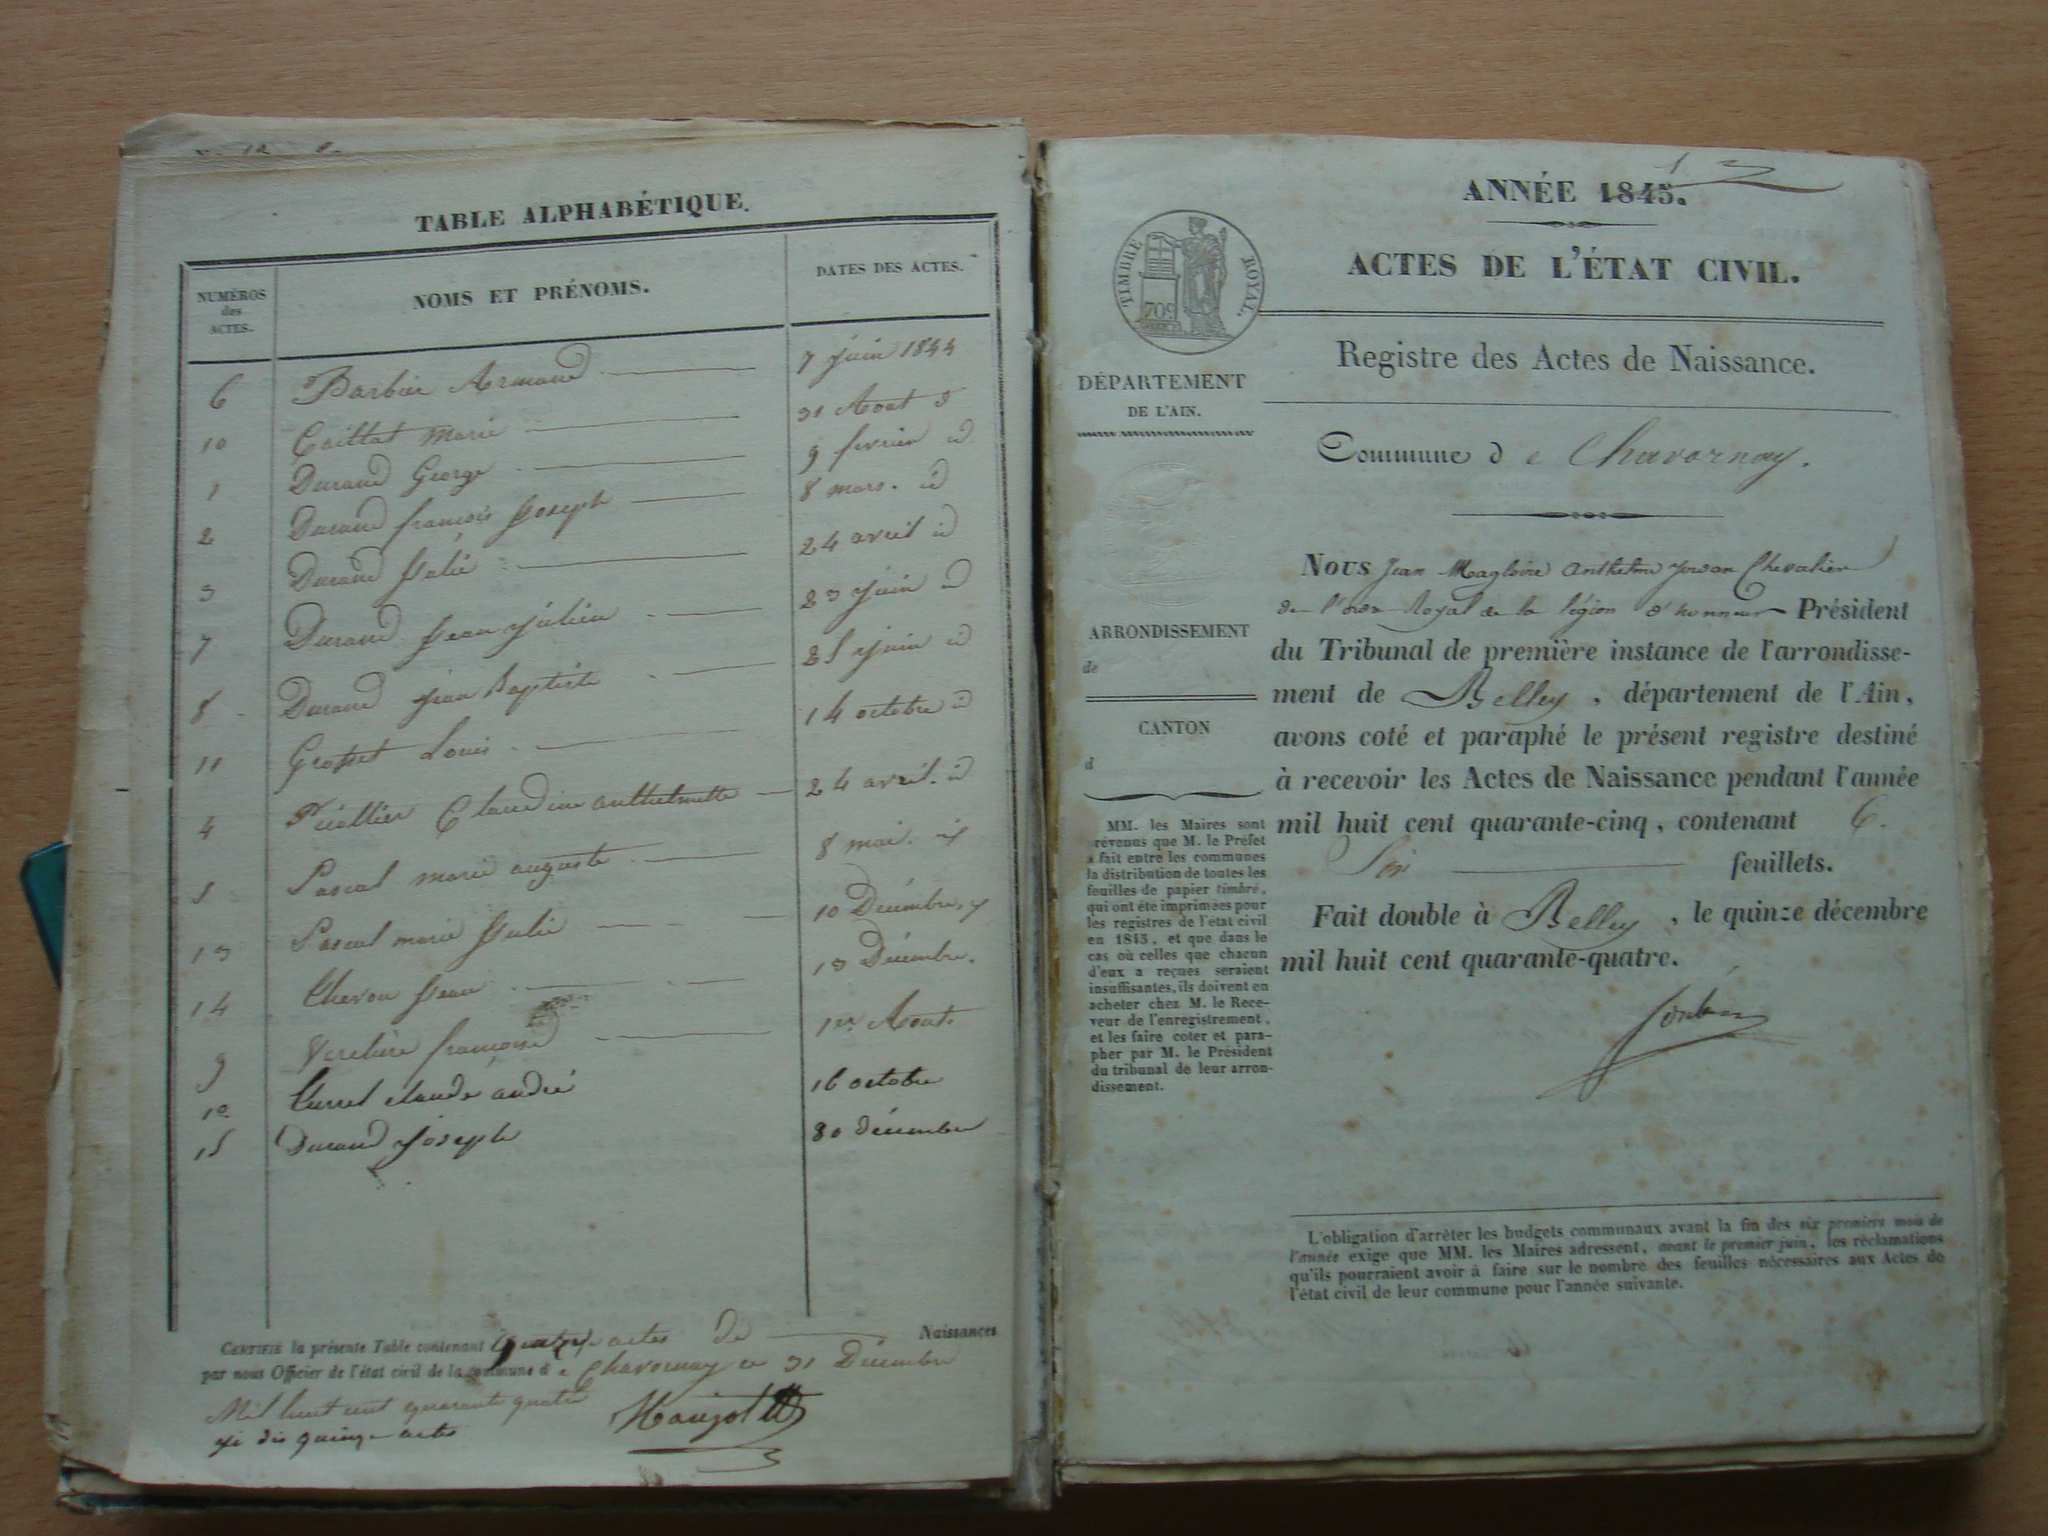 TABLE ALPHABÉTIQUE.
NUMÉROS
des
ACTES.
NOMS ET PRÉNOMS.
DATES DES ACTES.
6 Barbier Armand 7 juin 1844
10 Caillat Marie 31 Aout d
1 Durand George 9 fevrier id
2 Durand françois Joseph 8 mars. id
3 Durand Julie 24 avril id
7 Durand Jean Julien 23 juin id
8 Durand Jean Baptiste 25 juin id
11 Grosset Louis 14 octobre id
4 Claudine anthelmette 24 avril. id
5 Pascal marie auguste 8 mai.
13 Pascal marie Julie 10 Décembre
14 Jean 13 Décembre.
9 françoise 1er Aout.
12 claude andré 16 octobre
15 Durand Joseph 30 décembre
CERTIFIÉ la présente Table contenant quatorze actes de Naissances
par nous Officier de l'état civil de la commune d e Chavornay ce 31 Décembre
Mil huit cent quarante quatre
je dis quinze actes
ANNÉE 1845.
TIMBRE ROYAL.
709
ACTES DE L'ÉTAT CIVIL.
Registre des Actes de Naissance.
DÉPARTEMENT
DE L'AIN.
Commune d e Chavornay.
ARRONDISSEMENT
de
CANTON
d
MM. les Maires sont
prévenus que M. le Préfet
a fait entre les communes
la distribution de toutes les
feuilles de papier timbré,
qui ont été imprimées pour
les registres de l'état civil
en 1845, et que dans le
cas où celles que chacun
d'eux a reçues seraient
insuffisantes, ils doivent en
acheter chez M. le Rece-
veur de l'enregistrement,
et les faire coter et para-
pher par M. le Président
du tribunal de leur arron-
dissement.
Nous Jean Magloire Anthelme Jordan Chevalier
de l'ordre Royal de la légion d'honneur Président
du Tribunal de première instance de l'arrondisse-
ment de Belley, département de l'Ain,
avons coté et paraphé le présent registre destiné
à recevoir les Actes de Naissance pendant l'année
mil huit cent quarante-cinq, contenant 6.
Six feuillets.
Fait double à Belley, le quinze décembre
mil huit cent quarante-quatre.
Jordan
L'obligation d'arrêter les budgets communaux avant la fin des six premiers mois de
l'année exige que MM. les Maires adressent, avant le premier juin, les réclamations
qu'ils pourraient avoir à faire sur le nombre des feuilles nécessaires aux Actes de
l'état civil de leur commune pour l'année suivante.